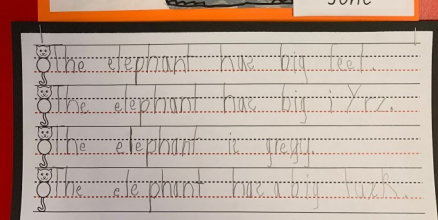 The elephant has big feet.
The elephant has big i Yrz.
The elephant is greyy.
The elephant has a big tuzk.